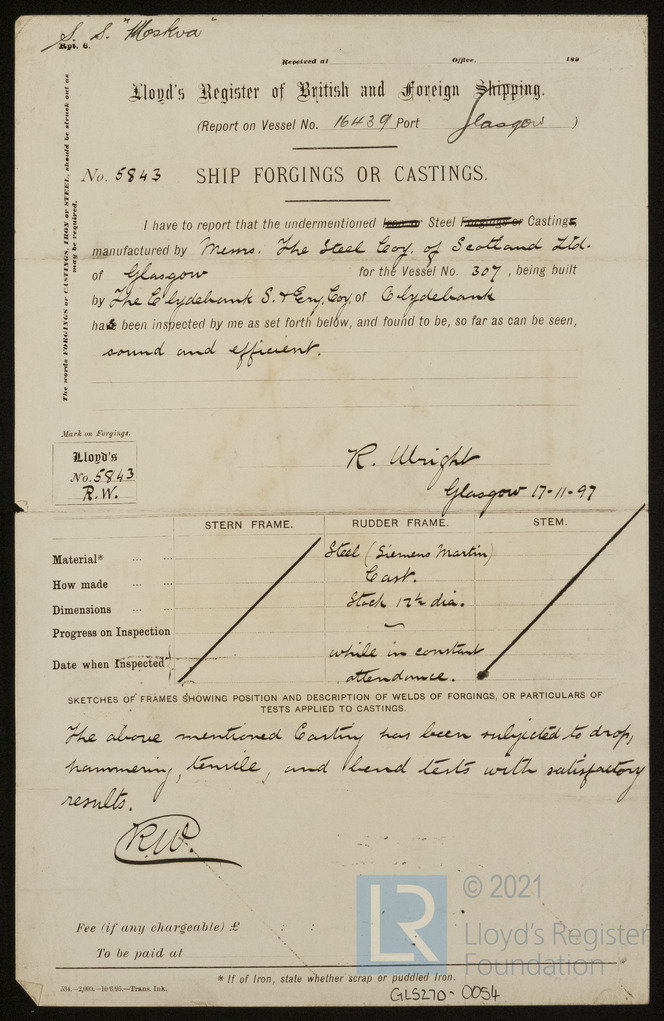 S. S. "Moskva"
Rpt. 6.
Received at Office, 189
Lloyd's Register of British and Foreign Shipping.
(Report on Vessel No. 16439 Port Glasgow )
No. 5843 SHIP FORGINGS OR CASTINGS.
The words FORGINGS or CASTINGS, IRON or STEEL, should be struck out as may be required.
I have to report that the undermentioned Iron or Steel Forgings or Castings,
manufactured by Messrs. The Steel Coy. of Scotland Ltd.
of Glasgow for the Vessel No. 307, being built
by The Clydebank S. & Eng. Coy. of Clydebank
has been inspected by me as set forth below, and found to be, so far as can be seen,
sound and efficient.
Mark on Forgings.
Lloyd's
No. 5843
R.W.
R. Wright
Glasgow 17-11-97
STERN FRAME. RUDDER FRAME. STEM.
Material* ... ... Steel (Siemens Martin)
How made ... ... Cast.
Dimensions ... ... Stock 12½ dia.
Progress on Inspection
Date when Inspected while in constant
attendance.
SKETCHES OF FRAMES SHOWING POSITION AND DESCRIPTION OF WELDS OF FORGINGS, OR PARTICULARS OF
TESTS APPLIED TO CASTINGS.
The above mentioned Casting has been subjected to drop,
hammering, tensile, and bend tests with satisfactory
results.
R.W.
Fee (if any chargeable) £ : :
To be paid at
* If of Iron, state whether scrap or puddled Iron.
534.—2,000.—10/6/95.—Trans. Ink.
GLS270-0054
LR
© 2021
Lloyd's Register
Foundation